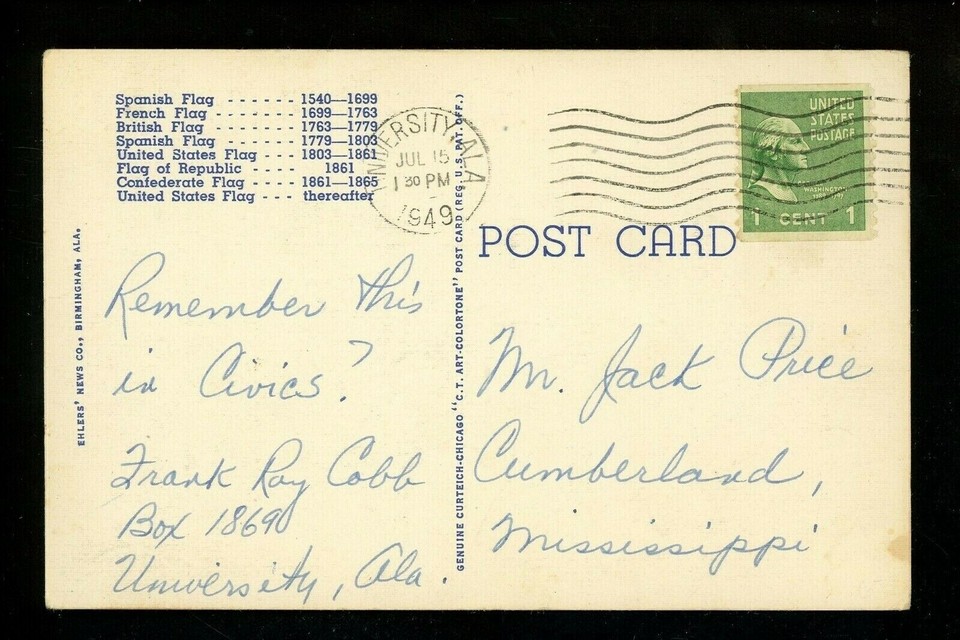 Spanish Flag - - - - - - - 1540—1699
French Flag - - - - - - - - 1699—1763
British Flag - - - - - - - - 1763—1779
Spanish Flag - - - - - - - 1779—1803
United States Flag - - - - 1803—1861
Flag of Republic - - - - - 1861
Confederate Flag - - - - 1861—1865
United States Flag - - - thereafter
EHLERS' NEWS CO., BIRMINGHAM, ALA.
Remember this
in Civics?
Frank Roy Cobb
Box 1869
University, Ala.
GENUINE CURTEICH-CHICAGO "C.T. ART-COLORTONE" POST CARD (REG. U.S. PAT. OFF.)
UNIVERSITY, ALA
JUL 15
1 30 PM
1949
UNITED
STATES
POSTAGE
WASHINGTON
1 CENT 1
POST CARD
Mr. Jack Price
Cumberland,
Mississippi